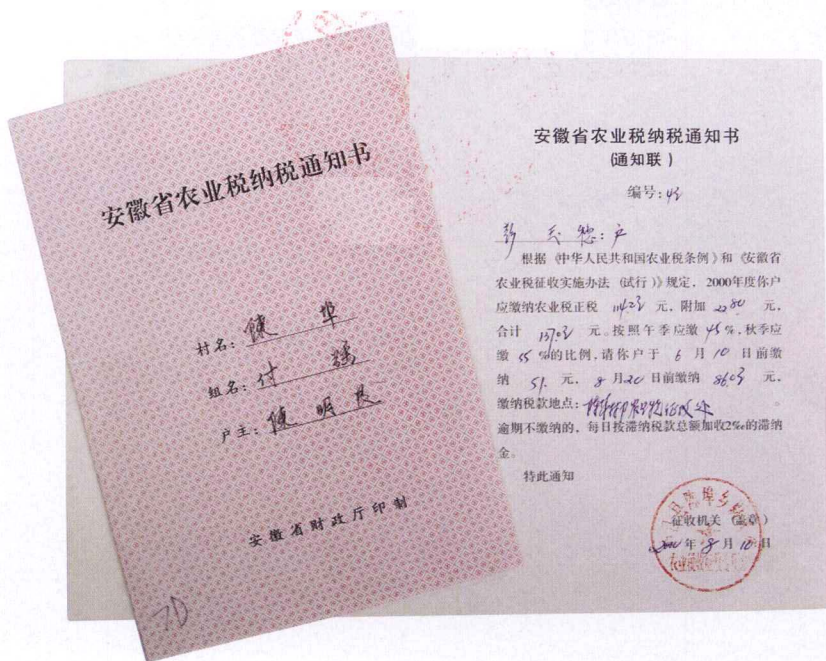 安徽省农业税纳税通知书
村名：陳 埠
组名：付
户主：陳明良
安徽省财政厅印制
安徽省农业税纳税通知书
(通知联)
编号：
彭 德：户
根据《中华人民共和国农业税条例》和《安徽省
农业税征收实施办法（试行）》规定，2000年度你户
应缴纳农业税正税 元，附加 22.80 元，
合计 元。按照午季应缴 45 %，秋季应
缴 55 %的比例，请你户于 6 月 10 日前缴
纳 51. 元，8 月20 日前缴纳 元，
缴纳税款地点：
逾期不缴纳的，每日按滞纳税款总额加收2‰的滞纳
金。
特此通知
征收机关（盖章）
年 8 月 10 日